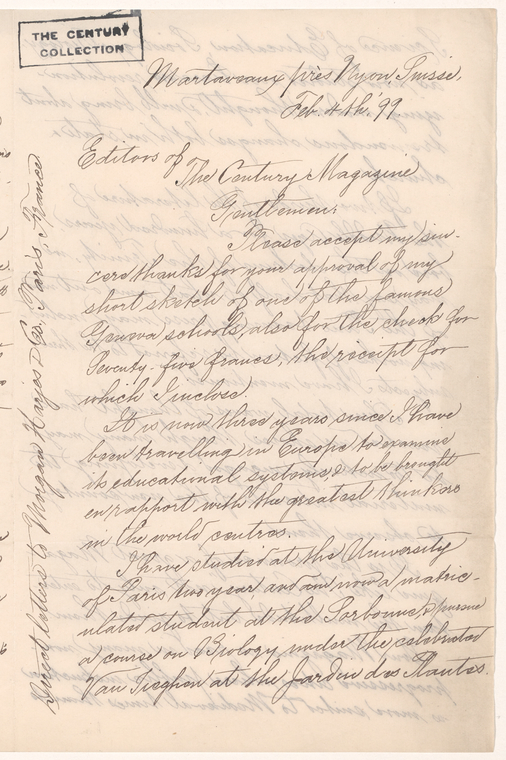 THE CENTURY
COLLECTION
Martavaux près Nyon, Suisse,
Feb. 4th, '99.
Editors of
The Century Magazine
Gentlemen:
Please accept my sin-
cere thanks for your approval of my
short sketch of one of the famous
Geneva schools, also for the check for
Seventy-five francs, the receipt for
which I inclose.
It is now three years since I have
been travelling in Europe to examine
its educational systems, & to be brought
en rapport with the greatest thinkers
in the world centres.
I have studied at the University
of Paris two year and am now a matric-
ulated student at the Sorbonne, & pursue
a course on Biology under the celebrated
Van Tieghen at the Jardin des Plantes.
Direct letters to Morgan Harjes & Co., Paris, France